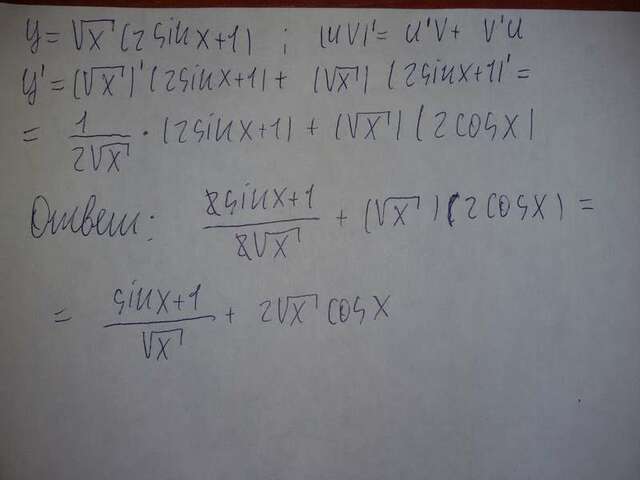 y = √x (2sinx+1) ; (uv)' = u'v + v'u
y' = (√x)' (2sinx+1) + (√x) (2sinx+1)' =
= 1/(2√x) · (2sinx+1) + (√x) (2cosx)
Ответ: (2sinx+1)/(2√x) + (√x) (2cosx) =
= (sinx+1)/√x + 2√x cosx